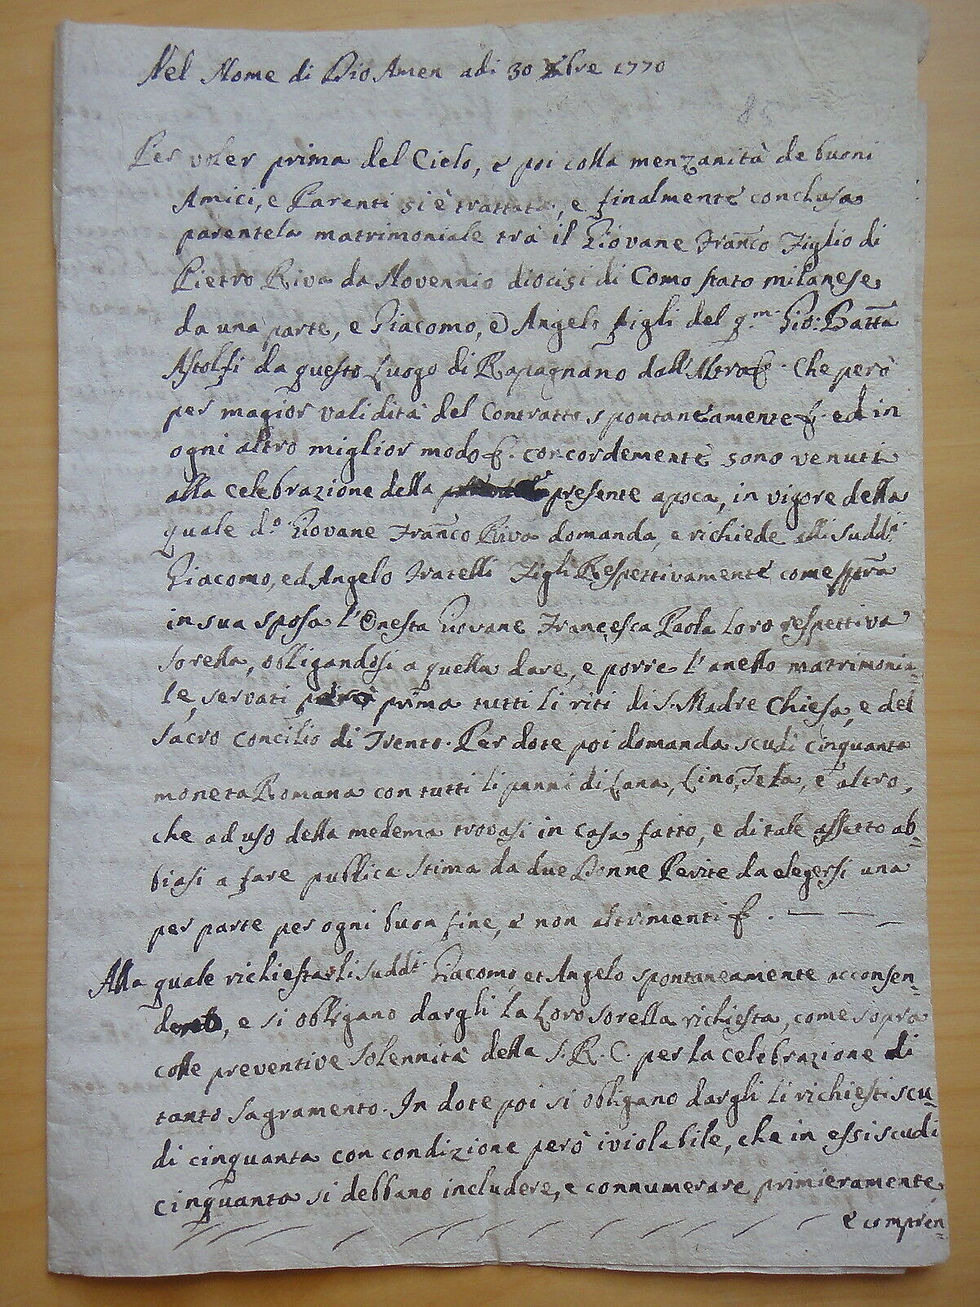 Nel Nome di Dio Amen adi 30 Xbre 1770
85
Per voler prima del Cielo, e poi colla menzanità de buoni
Amici, e Parenti si è trattata, e finalmente conclusa
parentela matrimoniale trà il Giovane Franco Figlio di
Pietro Riva da Novennio diocisi di Como stato milanese
da una parte, e Giacomo, ed Angelo figli del q.m Gio: Batta
Astolfi da questo Luogo di Rapagnano dall'Altra &. Che però
per magior validità del Contratto spontaneamente &. ed in
ogni altro miglior modo &. concordemente sono venuti
alla celebrazione della presente apoca, in vigore della
quale d.o Giovane Franco Riva domanda, e richiede alli sudd.i
Giacomo, ed Angelo Fratelli Figli Respettivamente come sopra
in sua sposa l'Onesta Giovane Francesca Paola loro respettiva
sorella, obligandosi a quella dare, e porre l'anello matrimonia=
le, servati però prima tutti li riti di S. Madre Chiesa, e del
Sacro Concilio di Trento. Per dote poi domanda scudi cinquanta
moneta Romana con tutti li panni di Lana, Lino, Tela, e altro,
che ad uso della medema trovasi in casa fatto, e di tale assetto ab=
biasi a fare publica stima da due Donne Perite da elegersi una
per parte per ogni buon fine, e non altrimenti &. — —
Alla quale richiesta li sudd.i Giacomo, et Angelo spontaneamente acconsen=
dono, e si obligano dargli la Loro sorella richiesta, come sopra
colle preventive solennità della S. R. C. per la celebrazione di
tanto Sagramento. In dote poi si obligano dargli li richiesti scu=
di cinquanta con condizione però iviolabile, che in essi scudi
cinquanta si debbano includere, e connumerare primieramente
e compren=